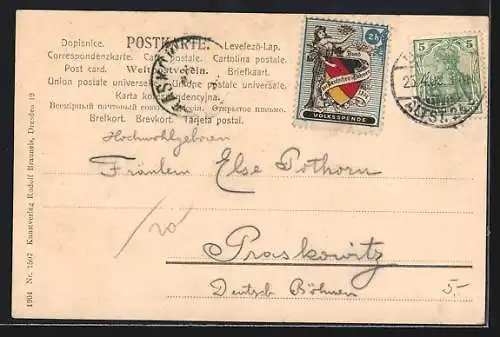 POSTKARTE.
Dopisnice. Levelező-Lap.
Correspondenzkarte. Carte postale. Cartolina postale.
Post card. Weltpostverein. Briefkaart.
Union postale universelle. Unione postale universale.
Karta korespondencyjna.
Всемірный почтовый союзъ. Открытое письмо.
Brefkort. Brevkort. Tarjeta postal.
Bund
2h
VOLKSSPENDE
5 5
ALTST.
Hochwohlgeboren
Fräulein Else Pothorn
Praskowitz
Deutsch Böhmen
5.-
1904 Nr. 7507 Kunstverlag Rudolf Braunels, Dresden 19